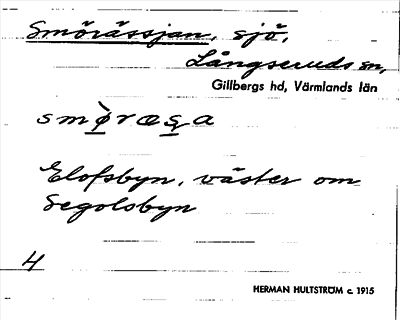 Smörässjan, sjö,
Långseruds sn,
Gillbergs hd, Värmlands län
Elofsbyn, väster om
Segolsbyn
4
HERMAN HULTSTRÖM c. 1915